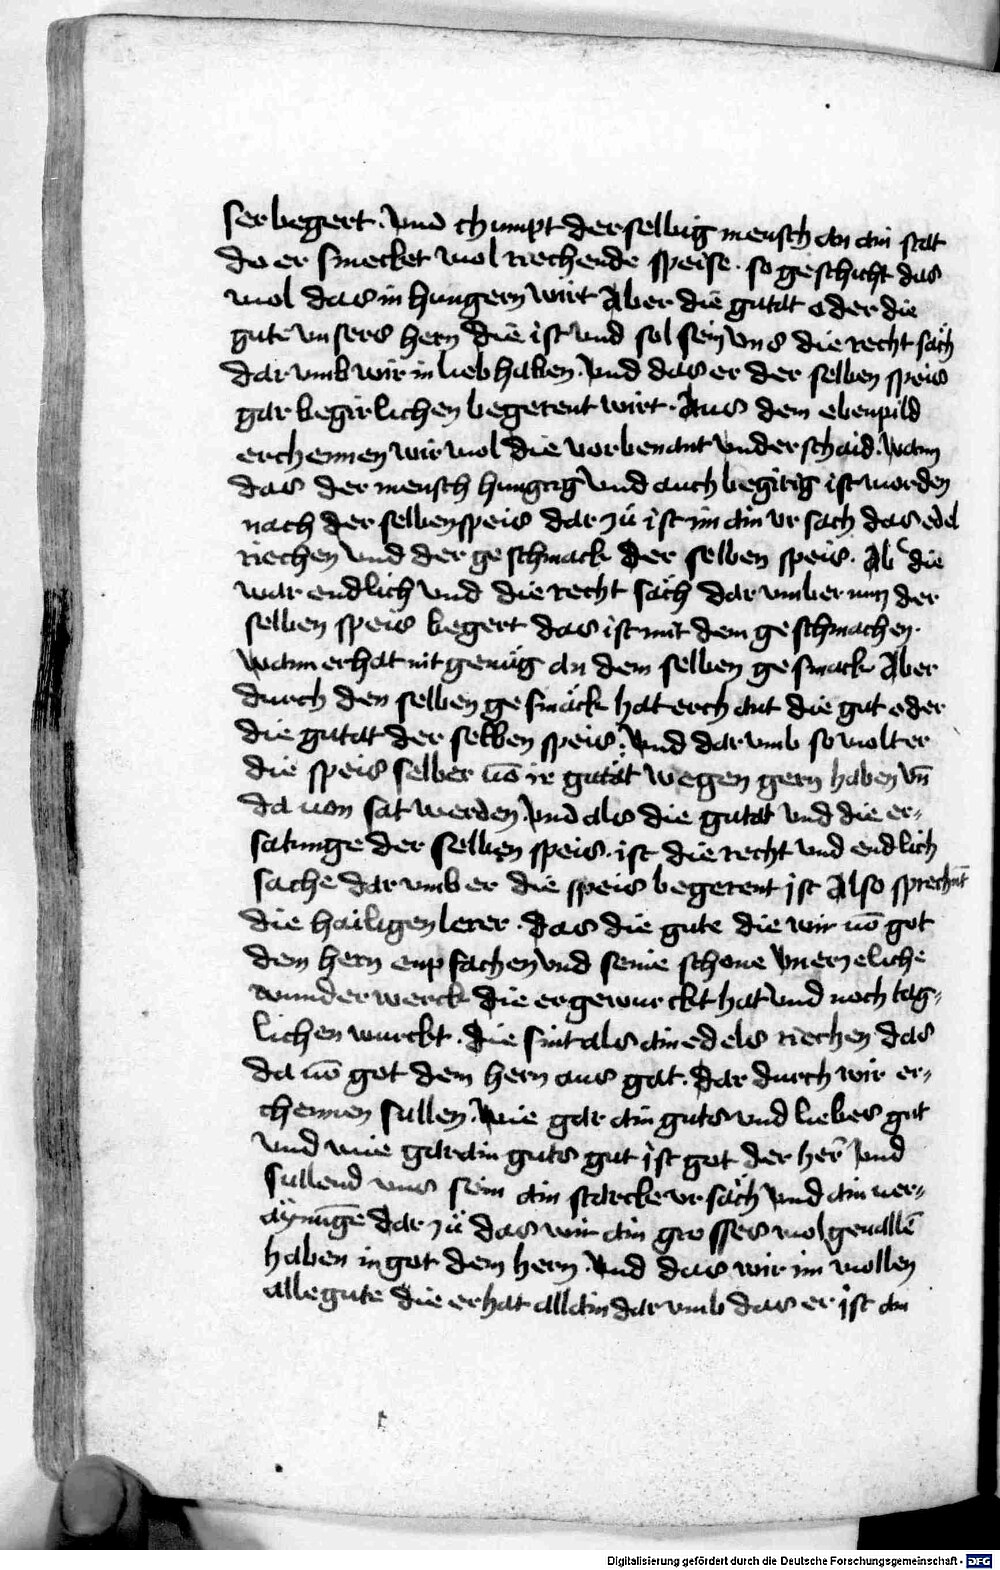 ser begert. Vnd chumpt der selbig mensch an ain stat
do er smecket wol riechende speise. so geschicht das
wol das in hungern wirt Aber die gutat oder die
gute vnsers hern die ist vnd sol sein vns die recht sach
dar vmb wir in lieb haben. Vnd das er der selben speis
gar begirlichen begerent wirt. Aus dem ebenpild
erchennen wir wol die vorbenant vnderschaid. Wann
das der mensch hungrig vnd auch begirig ist worden
nach der selben speis dar zů ist im ain vrsach das edel
riechen vnd der geschmack der selben speis. Ab die
war endlich vnd die recht sach dar vmb er nun der
selben speis begert das ist nit dem geschmachen.
Wann er hat nit genug an dem selben gesmack Aber
durch den selben gesmack hat erchant die gut oder
die gutat der selben speis. Vnd dar vmb so wolt er
die speis selber uō ir gutat wegen gern haben vn̄
da uon sat werden. Vnd als die gutat vnd die er⸗
satunge der selben speis. ist die recht vnd endlich
sache dar vmb er die speis begerent ist Also sprechnt
die hailigen lerer. das die gute die wir uō got
dem hern enpfachen vnd seine schone vnerzeliche
wunderwerck die er gewurckt hat vnd noch tag⸗
lichen wurckt. die sint als ain edels riechen das
da uō got dem hern aus gat. dar durch wir er⸗
chennen sullen. Wie gar ain guts vnd liebes gut
vnd wie gar ain guts gut ist got der her̄ Vnd
sullend vns sein ain starcke vrsach Vnd ain uer⸗
aynūge dar zů das wir ain grosses wolgeuallē
haben in got dem hern. Vnd das wir im wollen
alle gute die er hat allain dar vmb das er ist an
Digitalisierung gefördert durch die Deutsche Forschungsgemeinschaft - DFG